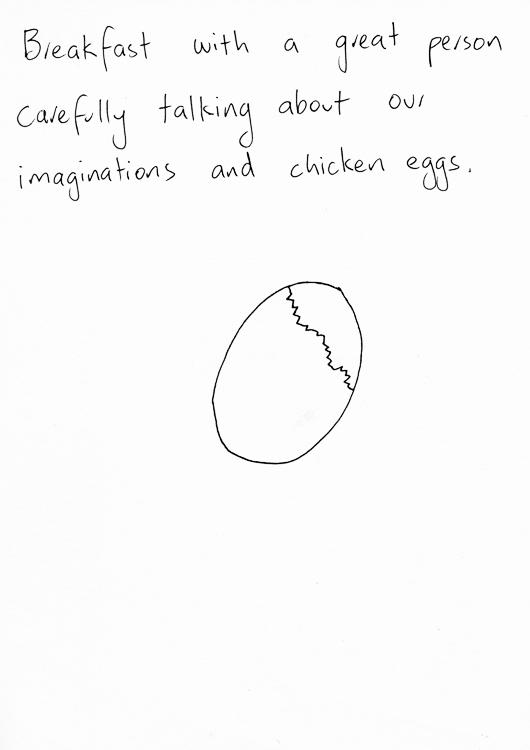 Breakfast with a great person
carefully talking about our
imaginations and chicken eggs.